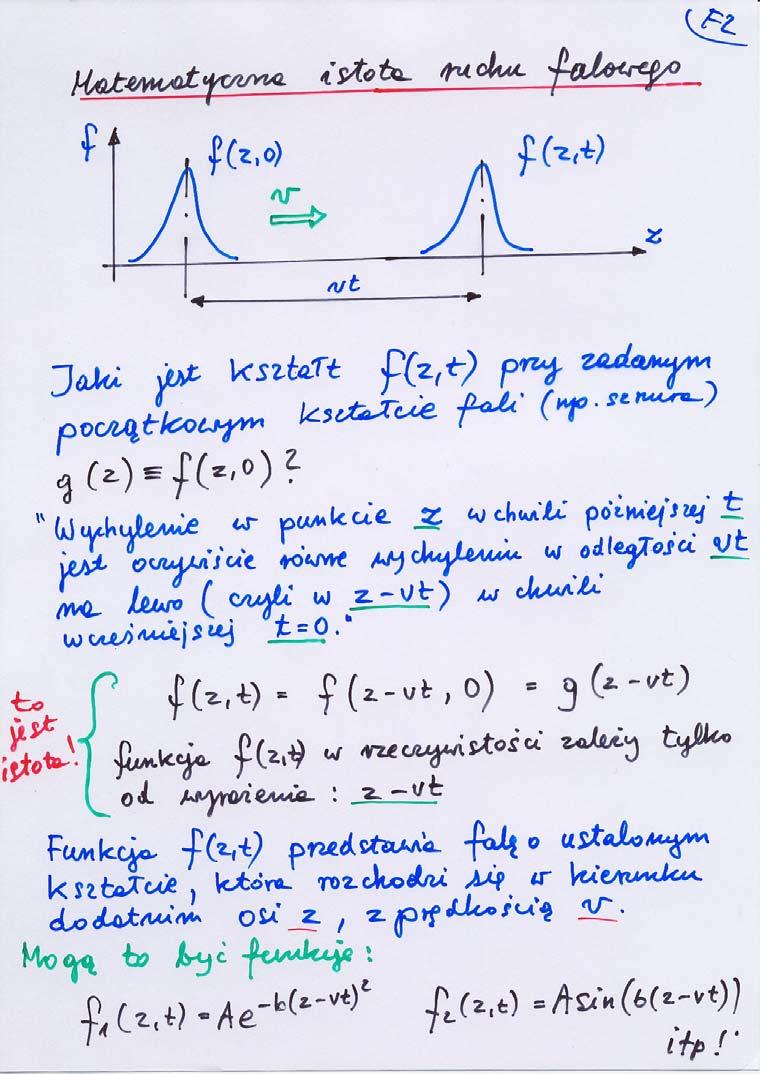 F2
Matematyczna istota ruchu falowego
f
f(z,0)
v
f(z,t)
z
vt
Jaki jest kształt f(z,t) przy zadanym
początkowym kształcie fali (np. sznura)
g(z) ≡ f(z,0)?
"Wychylenie w punkcie z w chwili późniejszej t
jest oczywiście równe wychyleniu w odległości vt
na lewo (czyli w z-vt) w chwili
wcześniejszej t=0."
to
jest
istota!
f(z,t) = f(z-vt, 0) = g(z-vt)
funkcja f(z,t) w rzeczywistości zależy tylko
od wyrażenia: z-vt
Funkcja f(z,t) przedstawia falę o ustalonym
kształcie, która rozchodzi się w kierunku
dodatnim osi z, z prędkością v.
Mogą to być funkcje:
f₁(z,t) = Ae^-b(z-vt)² f₂(z,t) = Asin(b(z-vt))
itp!